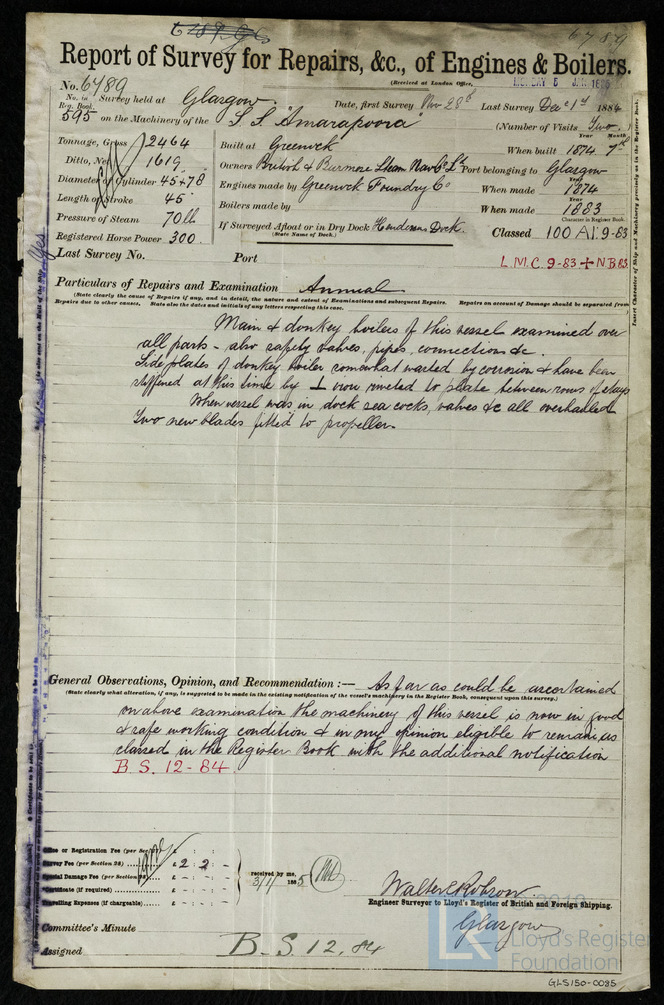 6789
Report of Survey for Repairs, &c., of Engines & Boilers.
(Received at London Office,
No. 6789
No. in Reg. Book. Survey held at Glasgow Date, first Survey Nov 28th Last Survey Dec 1st 1884
595 on the Machinery of the S S "Amarapoora" (Number of Visits Two)
Tonnage, Gross 2464
Ditto, Net 1619
Diameter of Cylinder 45 & 78
Length of Stroke 45
Pressure of Steam 70 lb
Registered Horse Power 300
Built at Greenock When built Year 1874 Month 7th
Owners British & Burmese Steam Nav Co Ld Port belonging to Glasgow
Engines made by Greenock Foundry Co When made Year 1874
Boilers made by When made Year 1883
If Surveyed Afloat or in Dry Dock Hendersons Dock.
(State Name of Dock.)
Character in Register Book.
Classed 100 A1. 9-83
Last Survey No. Port
L.M.C. 9-83 + N.B. 83
Particulars of Repairs and Examination Annual
(State clearly the cause of Repairs if any, and in detail, the nature and extent of Examinations and subsequent Repairs. Repairs on account of Damage should be separated from
Repairs due to other causes. State also the dates and initials of any letters respecting this case.
Main & donkey boilers of this vessel examined over
all parts - also safety valves, pipes, connections &c.
Side plates of donkey boiler somewhat wasted by corrosion & have been
stiffened at this time by ⊥ iron riveted to plate between rows of stays
When vessel was in dock sea cocks, valves &c all overhauled
Two new blades fitted to propeller.
General Observations, Opinion, and Recommendation :— As far as could be ascertained
(State clearly what alteration, if any, is suggested to be made in the existing notification of the vessel's machinery in the Register Book, consequent upon this survey.)
on above examination the machinery of this vessel is now in good
& safe working condition & in my opinion eligible to remain as
classed in the Register Book with the additional notification
B. S. 12-84.
Office or Registration Fee (per Sec £ : :
Survey Fee (per Section 28) £ 2 : 2 : -
Special Damage Fee (per Section 28) £ - : - : -
Certificate (if required) £ - : - : -
Travelling Expenses (if chargeable) £ - : - : -
received by me,
3/1/ 1885
Walter C Robson
Engineer Surveyor to Lloyd's Register of British and Foreign Shipping.
Glasgow
Committee's Minute
Assigned B. S. 12. 84
LR
Lloyd's Register
Foundation
GLS150-0085